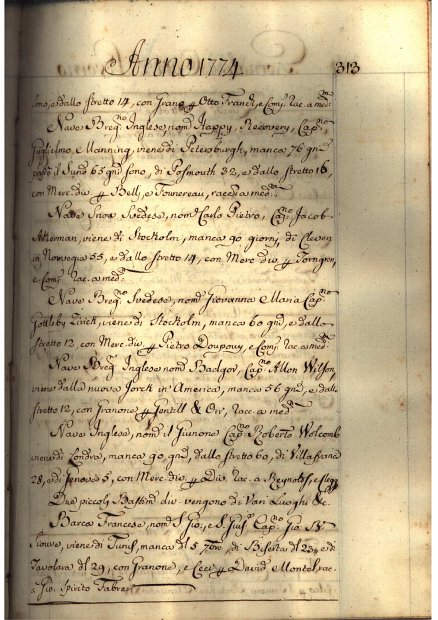 Anno 1774
313
sono, e dallo stretto 14, con Grano p Otto Franck, e Comp. rac. a med.mi
Nave Breg.no Inglese, nom.º Happy, Recovery, Cap.no
Guglielmo Manning, viene di Petersburgh, manca 76 gni
passò il Sund 63 gni sono, di Posmouth 32, e dallo stretto 16
con Merc. div. p Bell, e racc. a med.
Nave Snow Svedese, nom. Carlo Pietro, Cap. Jacob
Akerman, viene di Stockolm, manca 90 giorni, di Cleven
in Norvegia 55, e dallo stretto 14, con Merc. div. p
e Comp. rac. a med.
Nave Breg.no Svedese, nom. Giovanna Maria Cap.no
Gottlieb Zirick, viene di Stockolm, manca 60 gni, e dallo
stretto 12, con Merc. div. p Pietro Doupouy, e Comp. rac. a med.mi
Nave Breg. Inglese nom. Badger, Cap.no Allon Wilson,
viene dalla nuova Jorck in America, manca 56 gni, e dallo
stretto 12, con Granone p Gentill & Orr, racc. a med.mi
Nave Inglese, nom. il Giunone Cap.no Roberto Wolcomb
viene di Londra, manca 90 gni, dallo stretto 60, di Villafranca
28, e di Genova 5, con Merc. div. p Div. rac. a Reynolds, e
Due piccoli Bastim. div. vengono di Vari Luoghi &c.
Barca Francese, nom. S. Gio., e S. Gius. Cap.no Gio. B.
viene di Tunis, manca dl 5 7bre, di Biserta dl 23, e di
Tavolara dl 29, con Granone, e Ceci p David Montel, rac.
a Gio. Spirito Fabre